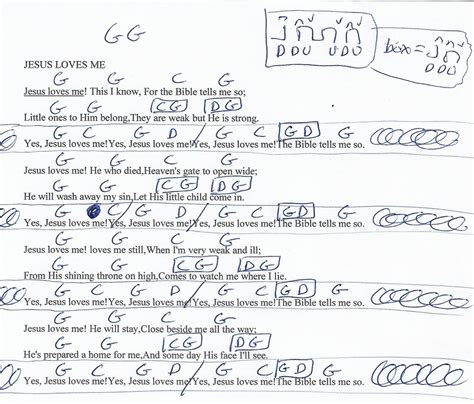 G G
D D U U D U
box =
D D U
JESUS LOVES ME
G G C G
Jesus loves me! This I know, For the Bible tells me so;
G G CG DG
Little ones to Him belong,They are weak but He is strong.
G C G D G C GD G
Yes, Jesus loves me!Yes, Jesus loves me!Yes, Jesus loves me!The Bible tells me so.
G G C G
Jesus loves me! He who died,Heaven's gate to open wide;
G G CG DG
He will wash away my sin,Let His little child come in.
G C G D G C GD G
Yes, Jesus loves me!Yes, Jesus loves me!Yes, Jesus loves me!The Bible tells me so.
G G C G
Jesus loves me! loves me still,When I'm very weak and ill;
G G CG DG
From His shining throne on high,Comes to watch me where I lie.
G C G D G C GD G
Yes, Jesus loves me!Yes, Jesus loves me!Yes, Jesus loves me!The Bible tells me so.
G G C G
Jesus loves me! He will stay,Close beside me all the way;
G G CG DG
He's prepared a home for me,And some day His face I'll see.
G C G D G C GD G
Yes, Jesus loves me!Yes, Jesus loves me!Yes, Jesus loves me!The Bible tells me so.